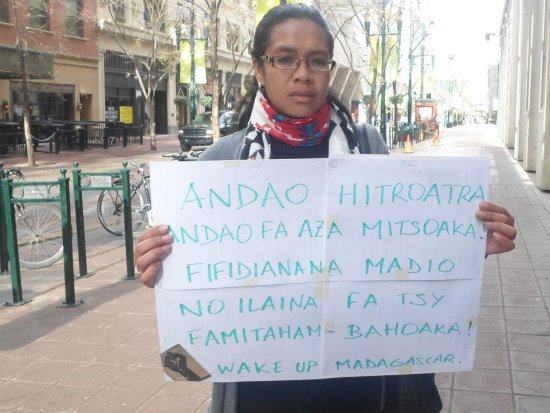 ANDAO HITROATRA
ANDAO FA AZA MITSOAKA.
FIFIDIANANA MADIO
NO ILAINA FA TSY
FAMITAHAM-BAHOAKA!
WAKE UP MADAGASCAR.